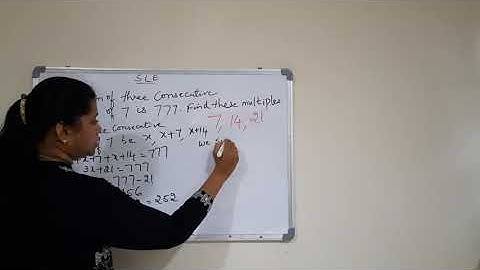 SLE
of three Consecutive
of 7 is 777. Find these multiples
7, 14, 21
Consecutive
7 be x, x+7, x+14
we
x+7+x+14=777
3x+21=777
777-21
56
= 252